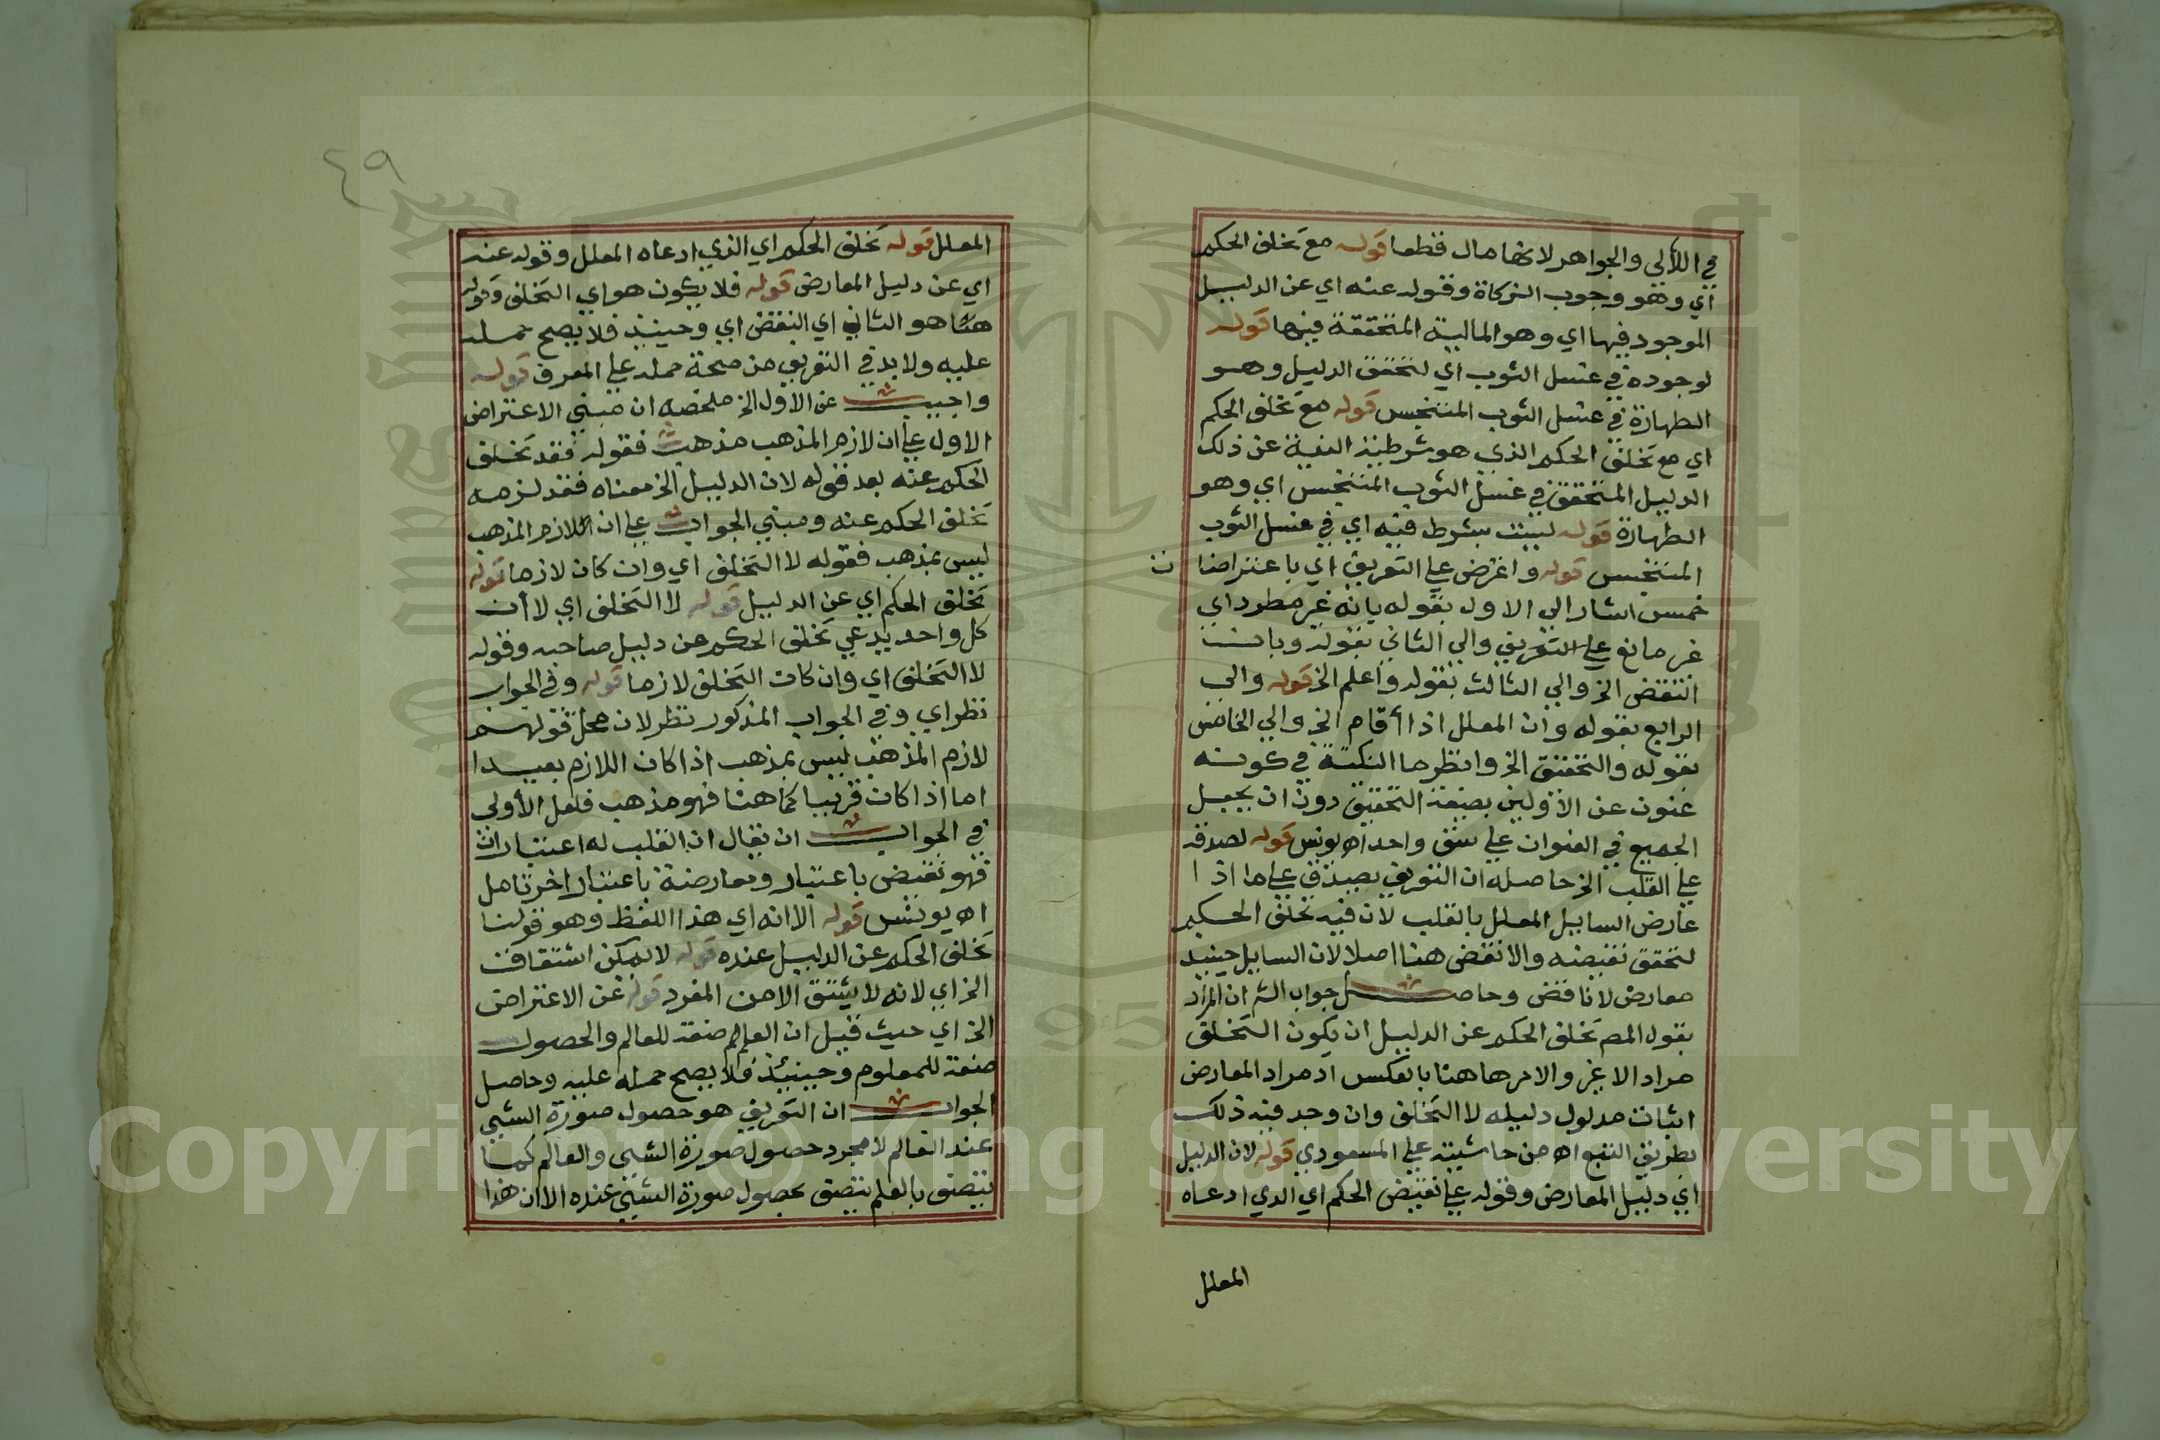 في اللآلي والجواهر لانها مال قطعا قوله مع تخلف الحكم
اي وهو وجوب الزكاة وقوله عنه اي عن الدليل
الموجود فيها اي وهو المالية المتحققة فيها قوله
لوجوده في غسل الثوب اي لتحقق الدليل وهو
الطهارة في غسل الثوب المتنجس قوله مع تخلف الحكم
اي مع تخلف الحكم الذي هو شرطية النية عن ذلك
الدليل المتحقق في غسل الثوب المتنجس اي وهو
الطهارة قوله ليست بشرط فيه اي في غسل الثوب
المتنجس قوله واعترض علي التعريف اي باعتراضا
ت
خمس اشار الي الاول بقوله بانه غير مطرد اي
غير مانع علي التعريف والي الثاني بقوله وبان
النقض الخ والي الثالث بقوله واعلم الخ قوله والي
الرابع بقوله وان المعلل اذا أقام الخ والي الخامس
بقوله والتحقيق الخ وانظر ما النكتة في كونه
عنون عن الاولين بصيغة التحقيق دون ان يجعل
الجميع في العنوان علي نسق واحد اه يونس قوله لصدقه
علي القلب الخ حاصله ان التعريف يصدق علي ما اذا
عارض السايل المعلل بالقلب لان فيه تخلف الحكم
لتحقق نقيضه والانقض هنا اصلا لان السايل حينيذ
معارض لا ناقض وحاصل جواب الش ان المراد
بقوله المص تخلف الحكم عن الدليل ان يكون التخلف
مراد الاغير والامر هاهنا بالعكس اد مراد المعارض
اثبات مدلول دليله لا التخلف وان وجد فيه ذلك
بطريق التبع اه من حاشيته علي المسعودي قوله لان الدليل
اي دليل المعارض وقوله علي نقيض الحكم اي الدي ادعاه
المعلل
٤٩
المعلل قوله تخلف الحكم اي الذي ادعاه المعلل وقوله عنه
اي عن دليل المعارض قوله فلا يكون هو اي التخلف وقوله
هنا هو الثاني اي النقض اي وحينيذ فلا يصح حمله
عليه ولا بد في التعريف من صحة حمله علي المعرف قوله
واجيب عن الاول الخ ملخصه ان مبني الاعتراض
الاول علي ان لازم المذهب مذهب فقوله فقد تخلف
الحكم عنه بعد قوله لان الدليل الخ معناه فقد لزمه
تخلف الحكم عنه ومبني الجواب علي ان اللازم المذهب
ليس بمذهب فقوله لا التخلف اي وان كان لازما قوله
تخلف الحكم اي عن الدليل قوله لا التخلف اي لا أن
كل واحد يدعي تخلف الحكم عن دليل صاحبه وقوله
لا التخلف اي وان كان التخلف لازما قوله وفي الجواب
نظر اي وفي الجواب المذكور نظر لان محل قولهم
لازم المذهب ليس بمذهب اذا كان اللازم بعيدا
اما اذا كان قريبا كما هنا فهو مذهب فلعل الأولي
في الجواب ان يقال ان القلب له اعتباران
فهو نقيض باعتبار ومعارضة باعتبار اخر تامل
اه يونس قوله الا انه اي هذا اللفظ وهو قولنا
تخلف الحكم عن الدليل عنده قوله لا يمكن اشتقاق
الخ اي لانه لا يشتق الا من المفرد قوله عن الاعتراض
الخ اي حيث قيل ان العلم صفة للعالم والحصول
صفة للمعلوم وحينيذ فلا يصح حمله عليه وحاصل
الجواب ان التعريف هو حصول صورة الشيي
عند العالم لا مجرد حصول صورة الشيي والعالم كما
يتصف بالعلم يتصف بحصول صورة الشيي عنده الا ان هذا